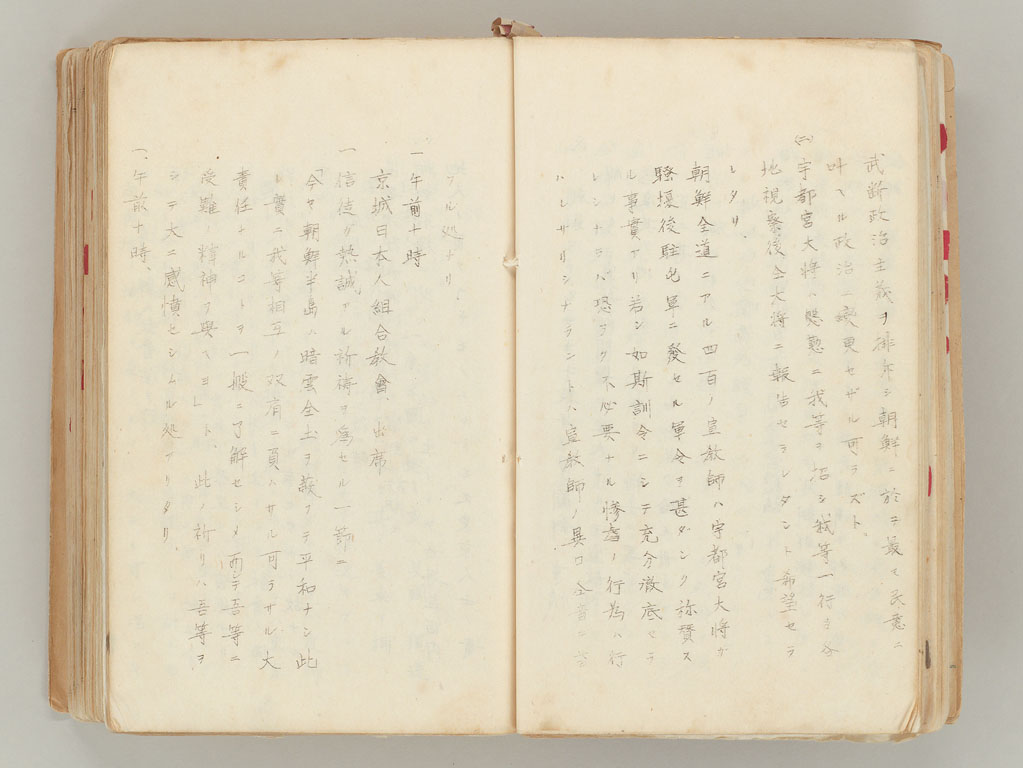 武断政治主義ヲ排斥シ朝鮮ニ於テ最モ民意ニ
叶ヘル政治ニ変更セザル可ラズト、
(二)宇都宮大将ハ慇懃ニ我等ヲ招シ我等一行ガ各
地視察後全大将ニ報告セラレタシト希望セラ
レタリ、
朝鮮全道ニアル四百ノ宣教師ハ宇都宮大将ガ
騒擾後駐屯軍ニ発セル軍令ヲ甚ダシク称賛ス
ル事實アリ若シ如斯訓令ニシテ充分徹底セラ
レシナラバ恐ラク不必要ナル惨虐ノ行為ハ行
ハレザリシナラントハ宣教師ノ異口全音ニ
テル処ナリ
一 午前十時
京城日本人組合教會、出席
一 信徒ガ熱誠アル祈祷ヲ為セル一節ニ
「今ヤ朝鮮半島ハ暗雲全土ヲ ヒテ平和ナシ此
レ實ニ我等相互ノ双肩ニ負ハサル可ラサル大
責任ナルコトヲ一般ニ了解セシメ而テ吾等ニ
受難ノ精神ヲ與ヘヨ」ト、此ノ祈リハ吾等ヲ
シテ大ニ感憤セシムル処アリタリ、
一、午前十時、